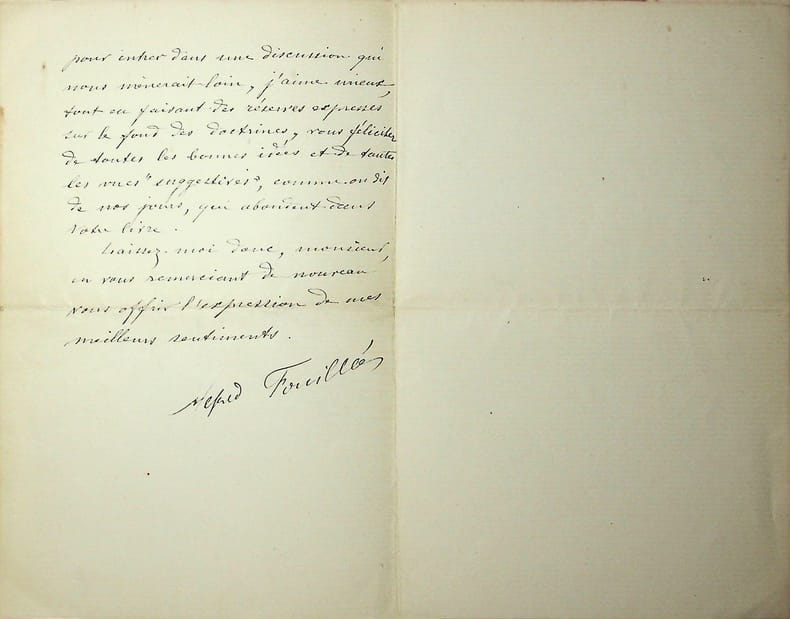 pour entrer dans une discussion qui
nous mènerait loin, j'aime mieux,
tout en faisant des réserves expresses
sur le fond des doctrines, vous féliciter
de toutes les bonnes idées et de toutes
les vues "suggestives", comme on dit
de nos jours, qui abondent dans
votre livre.
Laissez-moi donc, monsieur,
en vous remerciant de nouveau
vous offrir l'expression de mes
meilleurs sentiments.
Alfred Fouillée